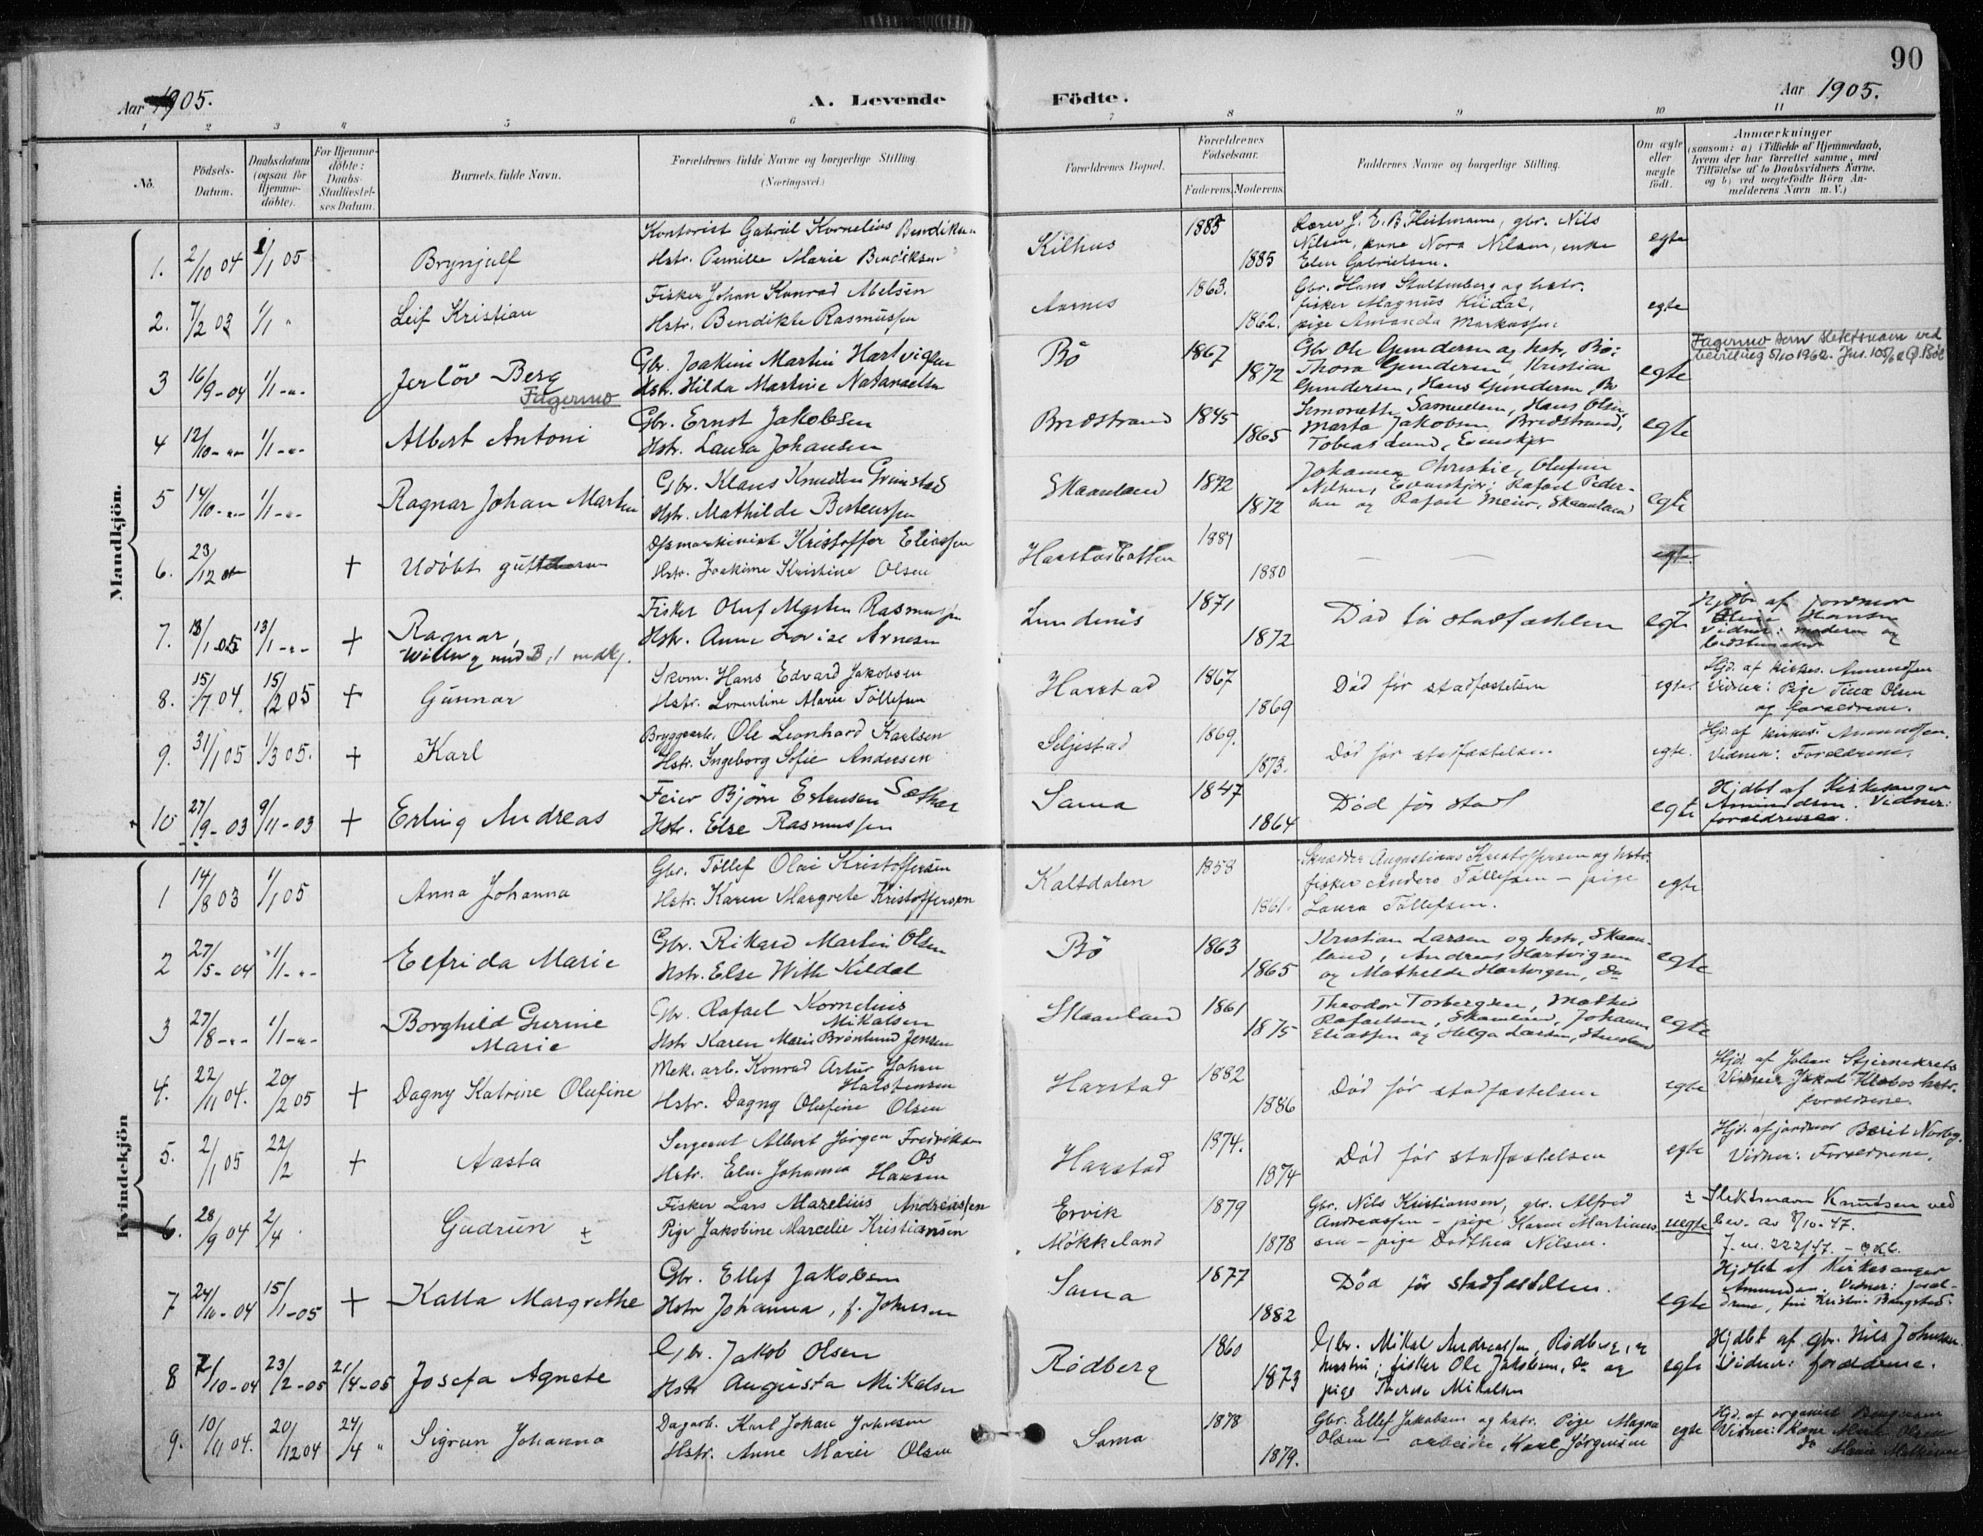 90
Aar 1905. A. Levende Födte. Aar 1905.
1 2 3 4 5 6 7 8 9 10 11
No. Födsels-Datum. Daabsdatum (ogsaa for Hjemme-döbte). For Hjemme-döbte: Daabs-Stadfæstel-ses Datum. Barnets fulde Navn. Forældrenes fulde Navne og borgerlige Stilling. (Næringsvei.) Forældrenes Bopæl. Forældrenes Födselsaar. Faderens. Moderens. Faddernes Navne og borgerlige Stilling. Om ægte eller uægte födt. Anmærkninger (saasom: a) i Tilfælde af Hjemmedaab, hvem der har forrettet samme, med Tilföielse af to Daabsvidners Navne, og b) ved uægtefödte Börn An-melderens Navn m. V.)
Mandkjön.
1. 2/10 04 1/1 05 Brynjulf
Kontorist Gabriel Kornelius Bendiksen
Hstr. Pernille Marie Bendiksen
Kilhus 1885 1885
Lærer J. E. B. Heitmann, gbr. Nils
Nilsen, kone Nora Nilsen, enke
Elen Gabrielsen.
egte
2. 7/2 03 1/1 " Leif Kristian
Fisker Johan Konrad Abelsen
Hstr. Bendikte Rasmussen
Aarnes 1863. 1862.
Gbr. Hans Stoltenberg og hstr.
fisker Magnus Kildal,
pige Amanda Markussen
egte
3 16/9-04 1/1-"- Jerlöv Berg
Fagermo
Gbr. Joakim Martin Hartvigsen
Hstr. Hilda Martine Natanaelsen
Bö 1867 1872
Gbr Ole Gundersen og hstr. Bö;
Thora Gundersen, Kristian
Gundersen, Hans Gundersen, Bö
egte
Fagermo som slektsnavn ved
bevilling 5/10 1962. Jus. 105/62
4 12/10-"- 1/1-"- Albert Antoni
Gbr. Ernst Jakobsen
Hstr. Laura Johansen
Bredstrand 1845 1865
Simonette Samuelsen, Hans Olsen,
Marta Jakobsen Bredstrand,
Tobias Lund, Evenskjer
egte
5 14/10-"- 1/1-"- Ragnar Johan Martin
Gbr. Klaus Knudsen Grimstad
Hstr. Mathilde Bertenssen
Skaanland 1842 1872
Johannes Christie, Olufine
Nilsen, Evenskjer; Rafael Peder-
sen og Rafael Meier, Skaanland
egte
6. 23/12 04 + Udöbt guttebarn
Dpsmaskinist Kristoffer Eliassen
Hstr. Joakime Kristine Olsen
Harstadbotten 1881 1880
— —
egte.
7. 13/1-05 13/1-"- + Ragnar,
Fisker Oluf Morten Rasmussen
Hstr. Anne Lovise Arnesen
Lundenes 1871 1872
Död för stadfæstelsen
egte
Hjdbt af jordmor
Oline Hansen
Vidner: moderen og
8. 15/7 04. 15/2 05 + Gunnar
Skom. Hans Edvard Jakobsen
Hstr. Lorentine Marie Töllefsen
Harstad 1867 1869
Död för stadfæstelsen
egte.
Hjd. af kirkes. Amundsen
Vidner: Pige Tina Olsen
og forældrene.
9. 31/1 05 1/3 05. + Karl
Bryggearb. Ole Leonhard Karlsen
Hstr. Ingeborg Sofie Andersen
Seljestad 1869. 1873.
Död för stadfæstelsen.
egte.
Hjd. af kirkes. Amundsen.
Vidner: Forældrene.
10 27/9-03 9/11-03 + Erling Andreas
Feier Björn Estensen Sæther
Hstr. Else Rasmussen
Sama 1847 1864
Död för stadf
egte
Hjdbt af Kirkesanger
Amundsen. Vidner:
forældrene.
Kvindekjön
1 14/8 03 1/1 05 Anna Johanna
Gbr. Töllef Olai Kristoffersen
Hstr. Karen Margrete Kristoffersen
Kaltdalen 1858 1861.
Skrædder Augustinus Kristoffersen og hstr.
fisker Anders Töllefsen – pige
Laura Töllefsen.
egte
2 27/5-04 1/1-"- Elfrida Marie
Gbr. Rikard Martin Olsen
Hstr. Else With Kildal
Bö 1863 1865
Kristian Larsen og hstr, Skaan-
land, Andreas Hartvigsen
og Mathilde Hartvigsen, do
egte
3 27/8-"- 1/1-"- Borghild Gurine
Marie
Gbr. Rafael Kornelius
Mikalsen
Hstr Karen Marie Brönlund Jensen
Skaanland 1861 1875
Theodor Torbergsen, Mathis
Rafaelsen, Skaanland, Johanna
Eliassen og Helga Larsen,
egte
4. 22/11 04. 20/2 05 + Dagny Katrine Olufine
Mek. arb. Konrad Artur Johan
Halstensen
Hstr. Dagny Olufine Olsen
Harstad 1882 1886
Död för stadfæstelsen
egte
Hjd. af Johan Stjernekrets
Vidner: Jakob Klæbos hstr.
forældrene.
5. 2/1 05 22/2 + Aasta
Sergeant Albert Jörgen Fredriksen
Hstr. Elen Johanna Hansen
Harstad 1874. 1874
Död för stadfæstelsen
egte
Hjd. af jordmor Berit Norbeg.
Vidner: Forældrene.
6. 28/9 04 2/4 . Gudrun ±
Fisker Lars Marelius Andreassen
Pige Jakobine Marcelie Kristiansen
Ervik
Mökkeland 1879 1878
Gbr. Nils Kristiansen, gbr. Alfred
Andreassen – pige Karen Martinus-
sen – pige Dorthea Nilsen.
uegte
± Slektsnavn Knutsen ved
bev. av 8/10-47.
J. nr. 222/47.
7 24/10-04 15/1-05 + Kalla Margrethe
Gbr. Ellef Jakobsen
Hstr Johanna, f. Johnsen
Sama 1877 1882
Död för stadfæstelsen.
egte
Hjdbt af Kirkesanger
Amundsen. Vidner: foræl-
drene, frk Kristine Bangstad.
8 7/10-04 23/2-05 21/4-05 Josefa Agnete
Gbr. Jakob Olsen
Hstr Augusta Mikalsen
Rödberg 1860 1873
Gbr. Mikal Andreassen, Rödberg, og
hustru; fisker Ole Jakobsen, do og
pige Therese Mikalsen
egte
Hjdbt af gbr. Nils Johnsen.
Vidner: forældrene.
9. 10/11 04. 20/12 04 24/4 " Sigrun Johanna
Dagarb. Karl Johan Johnsen
Hstr. Anne Marie Olsen
Sama 1878 1879.
Gbr. Ellef Jakobsen og hstr. Pige Magna
Olsen – arbeider Karl Jörgensen
egte
Hjd. af organist Bengtson
Vidner: Kone Marte Olsen
do Marie Mathisen